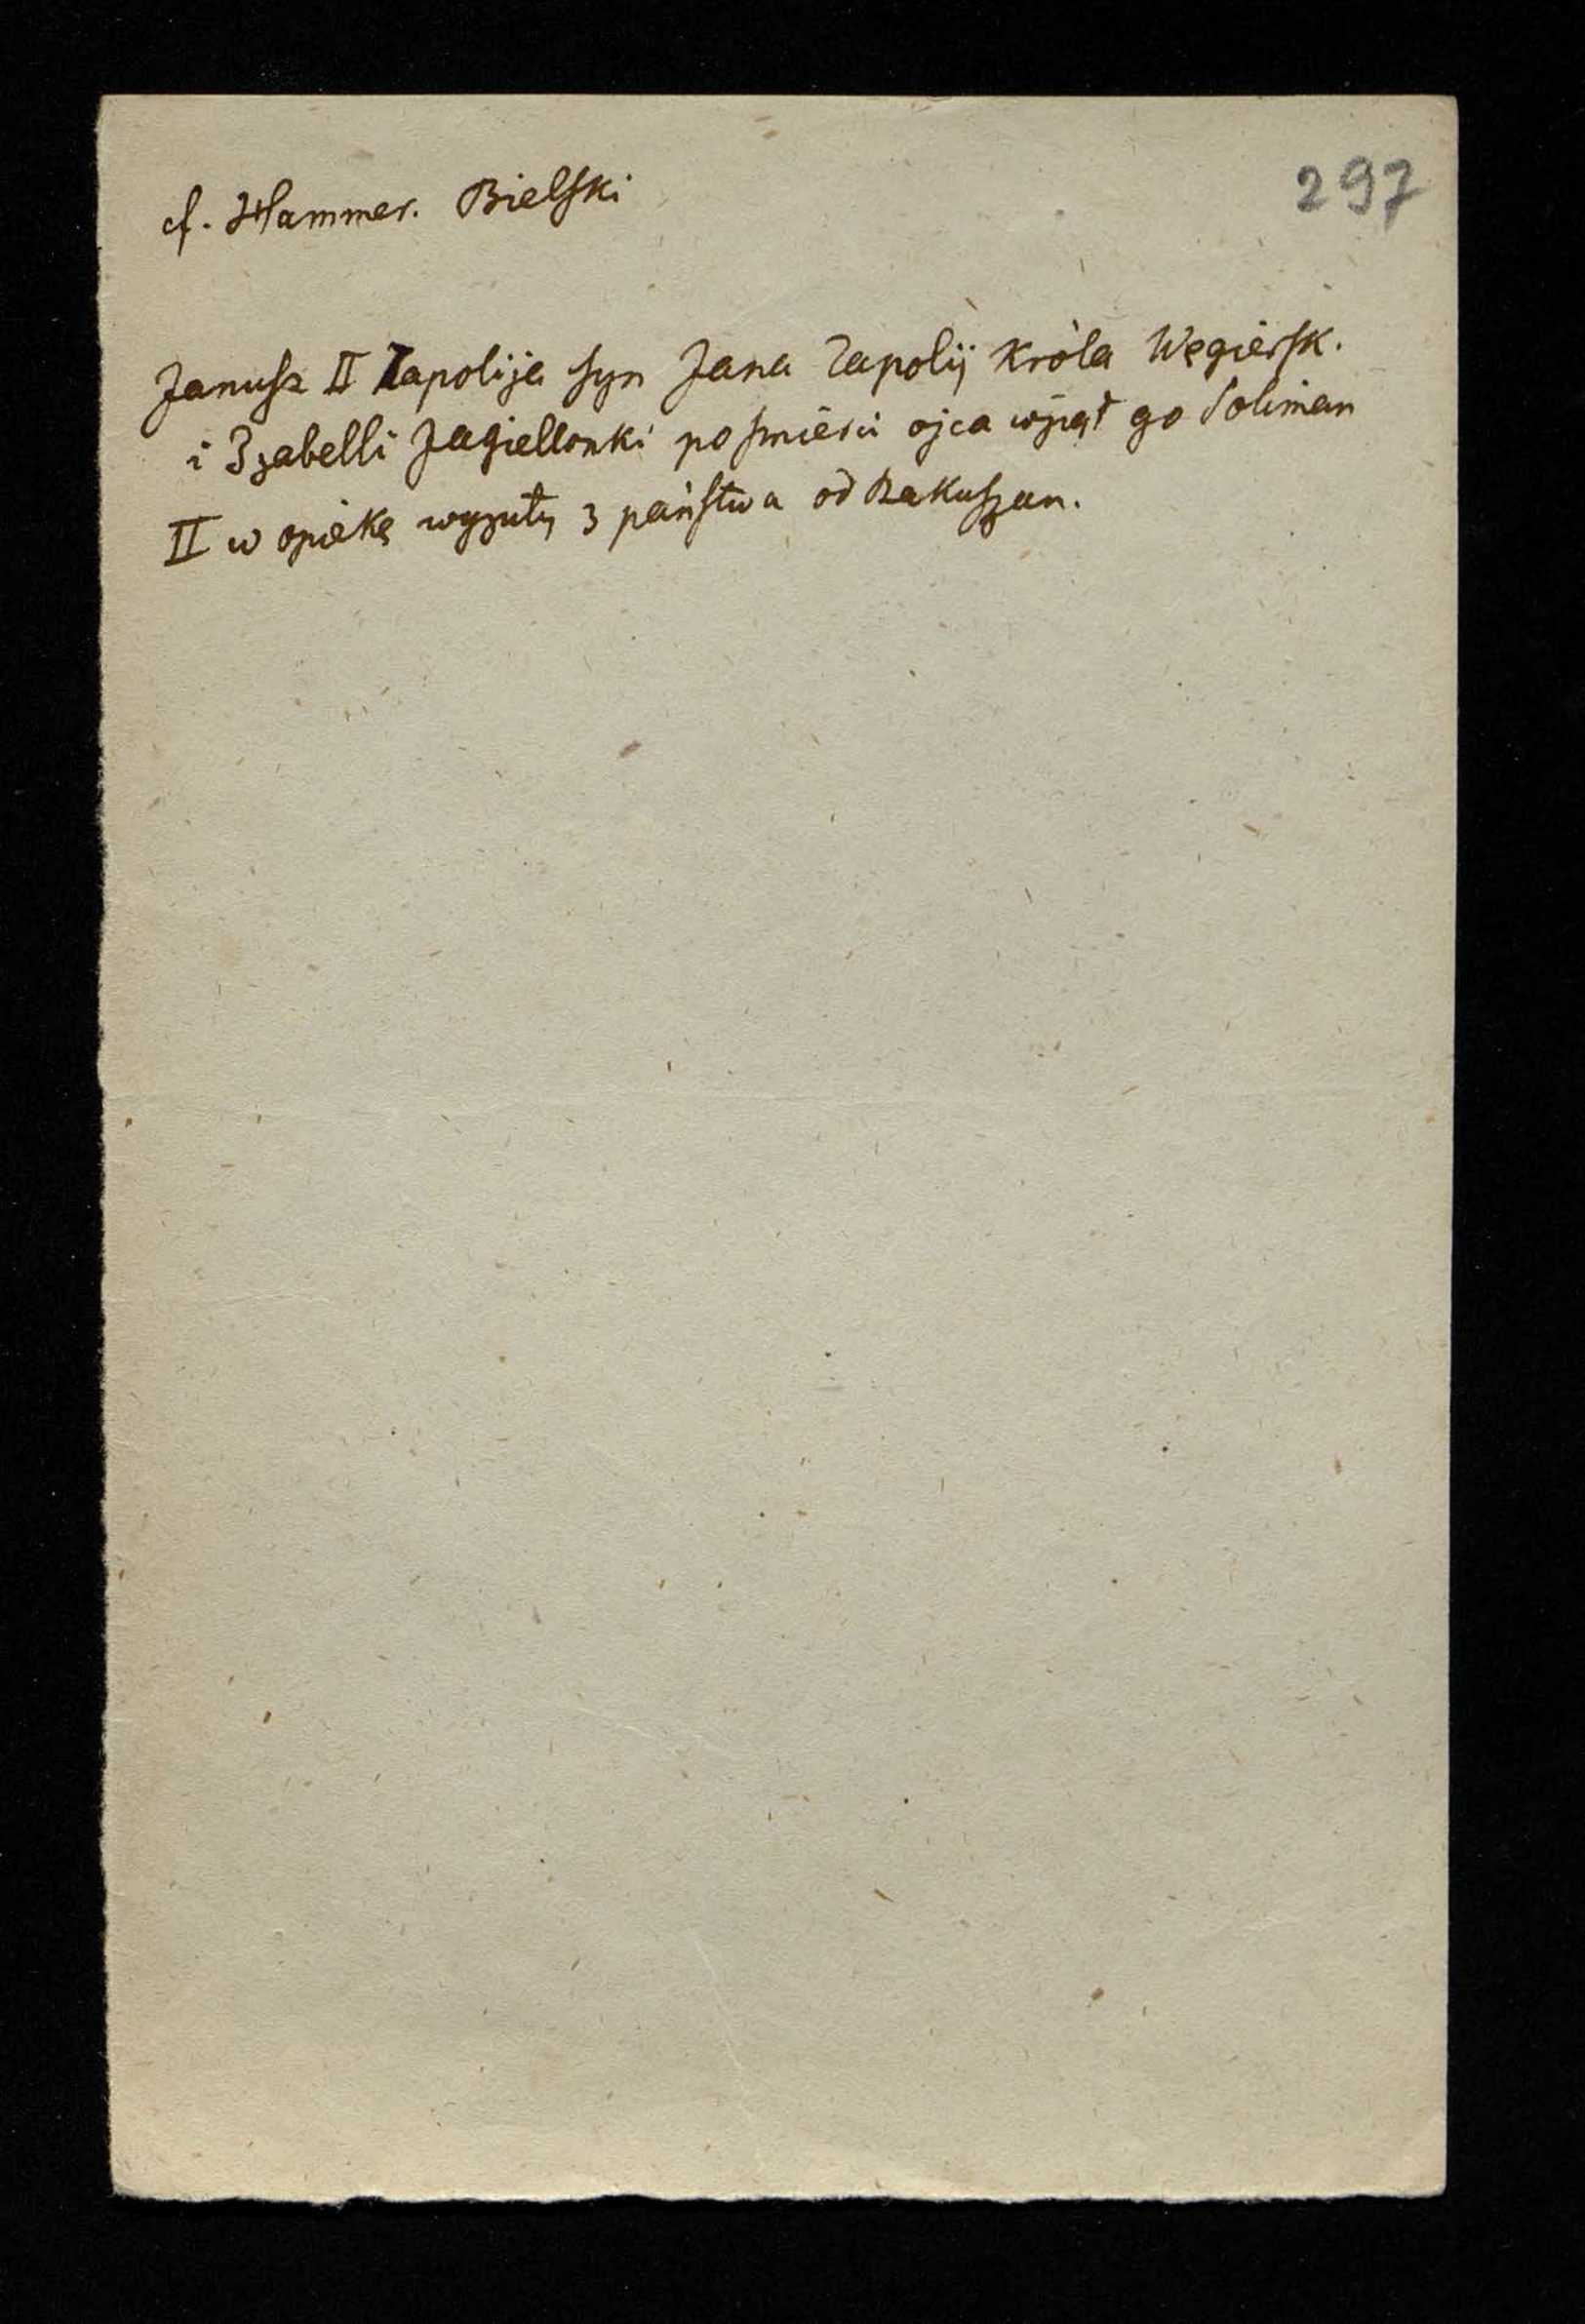 cf. Hammer. Bielski
297
Janusz II Zapolija syn Jana Zapolij Króla Węgiersk.
i Izabelli Jagiellonki po śmierci ojca wziął go Soliman
II w opiekę wyzuty z państwa od Rakuszan.